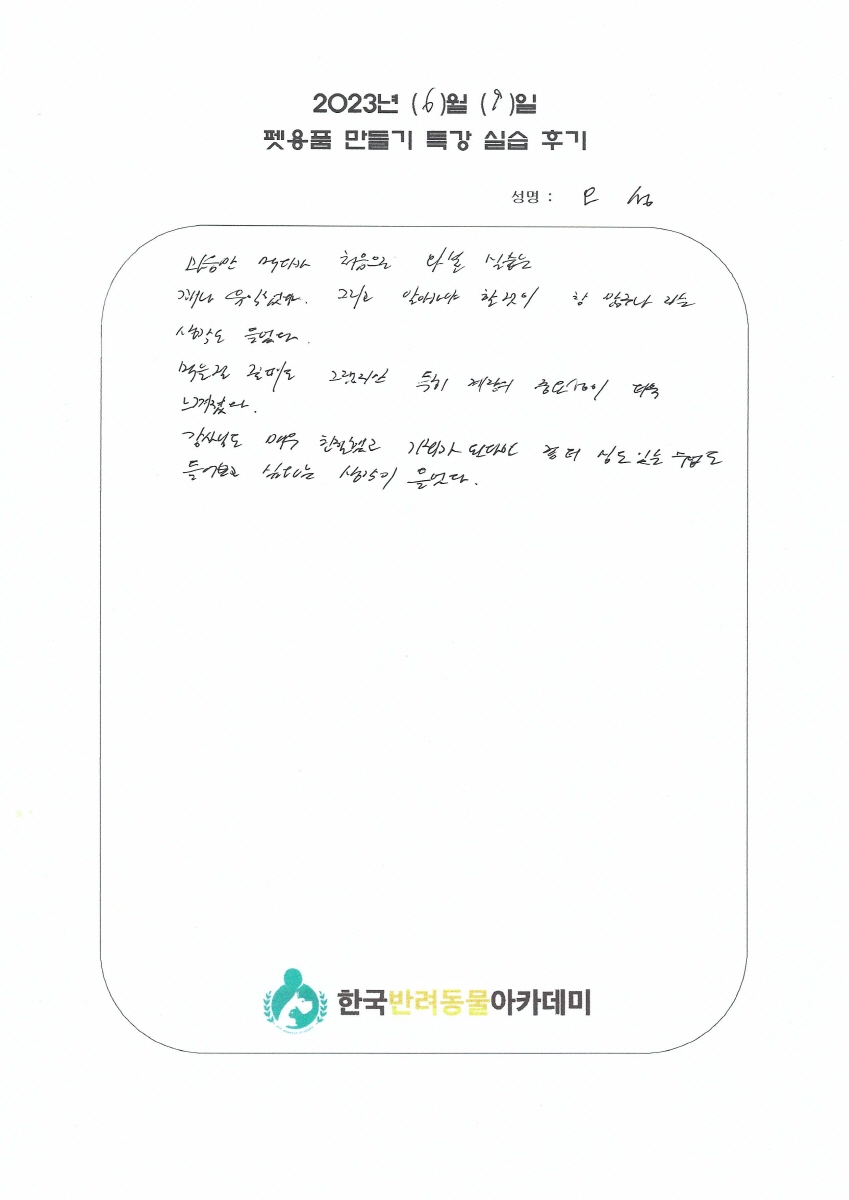 2023년 (6)월 (9)일
펫용품 만들기 특강 실습 후기
성명 : 모 성
처음으로 와본 실습은
꽤나 유익했다. 그리고 알아야 할것이 참 많구나 라는
생각도 들었다.
특히 계량의 중요성이 더욱
느껴졌다.
강사님도 매우 친절했고 기회가 된다면 좀 더 심도 있는 수업도
들어보고 싶다는 생각이 들었다.
한국반려동물아카데미